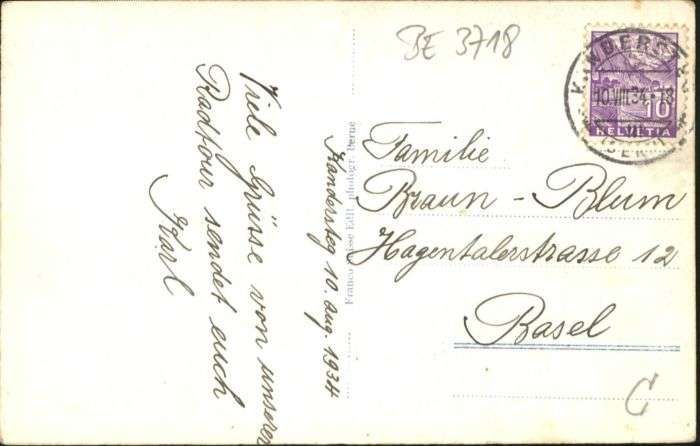 BE 3718
KANDERSTEG
10.VIII.34-18
10
HELVETIA
Kandersteg 10. Aug. 1934
Viele Grüsse von unserer
Radtour sendet euch
Karl
Edit. photogr. Berne
Familie
Braun - Blum
Hagentalerstrasse 12
Basel
C